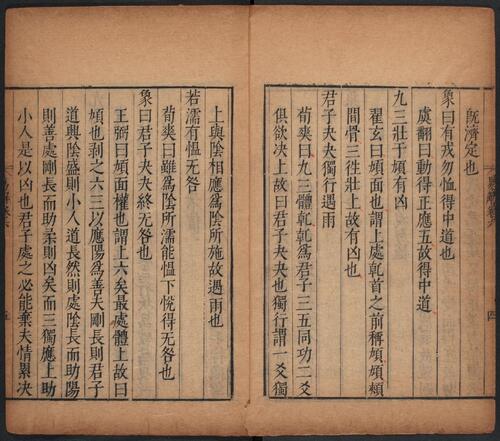 旣濟定也
象曰有戎勿恤得中道也
虞翻曰動得正應五故得中道
九三壯于頄有凶
翟玄曰頄面也謂上處乾首之前稱頄頄頰
間骨三徃壯上故有凶也
君子夬夬獨行遇雨
荀爽曰九三體乾乾爲君子三五同功二爻
俱欲决上故曰君子夬夬也獨行謂一爻獨
上與陰相應爲陰所施故遇雨也
若濡有慍无咎
荀爽曰雖爲陰所濡能慍不恱得无咎也
象曰君子夬夬終无咎也
王弼曰頄面權也謂上六矣最處體上故曰
頄也剥之六三以應陽爲善夫剛長則君子
道興陰盛則小人道長然則處陰長而助陽
則善處剛長而助柔則凶矣而三獨應上助
小人是以凶也君子處之必能棄夫情累决